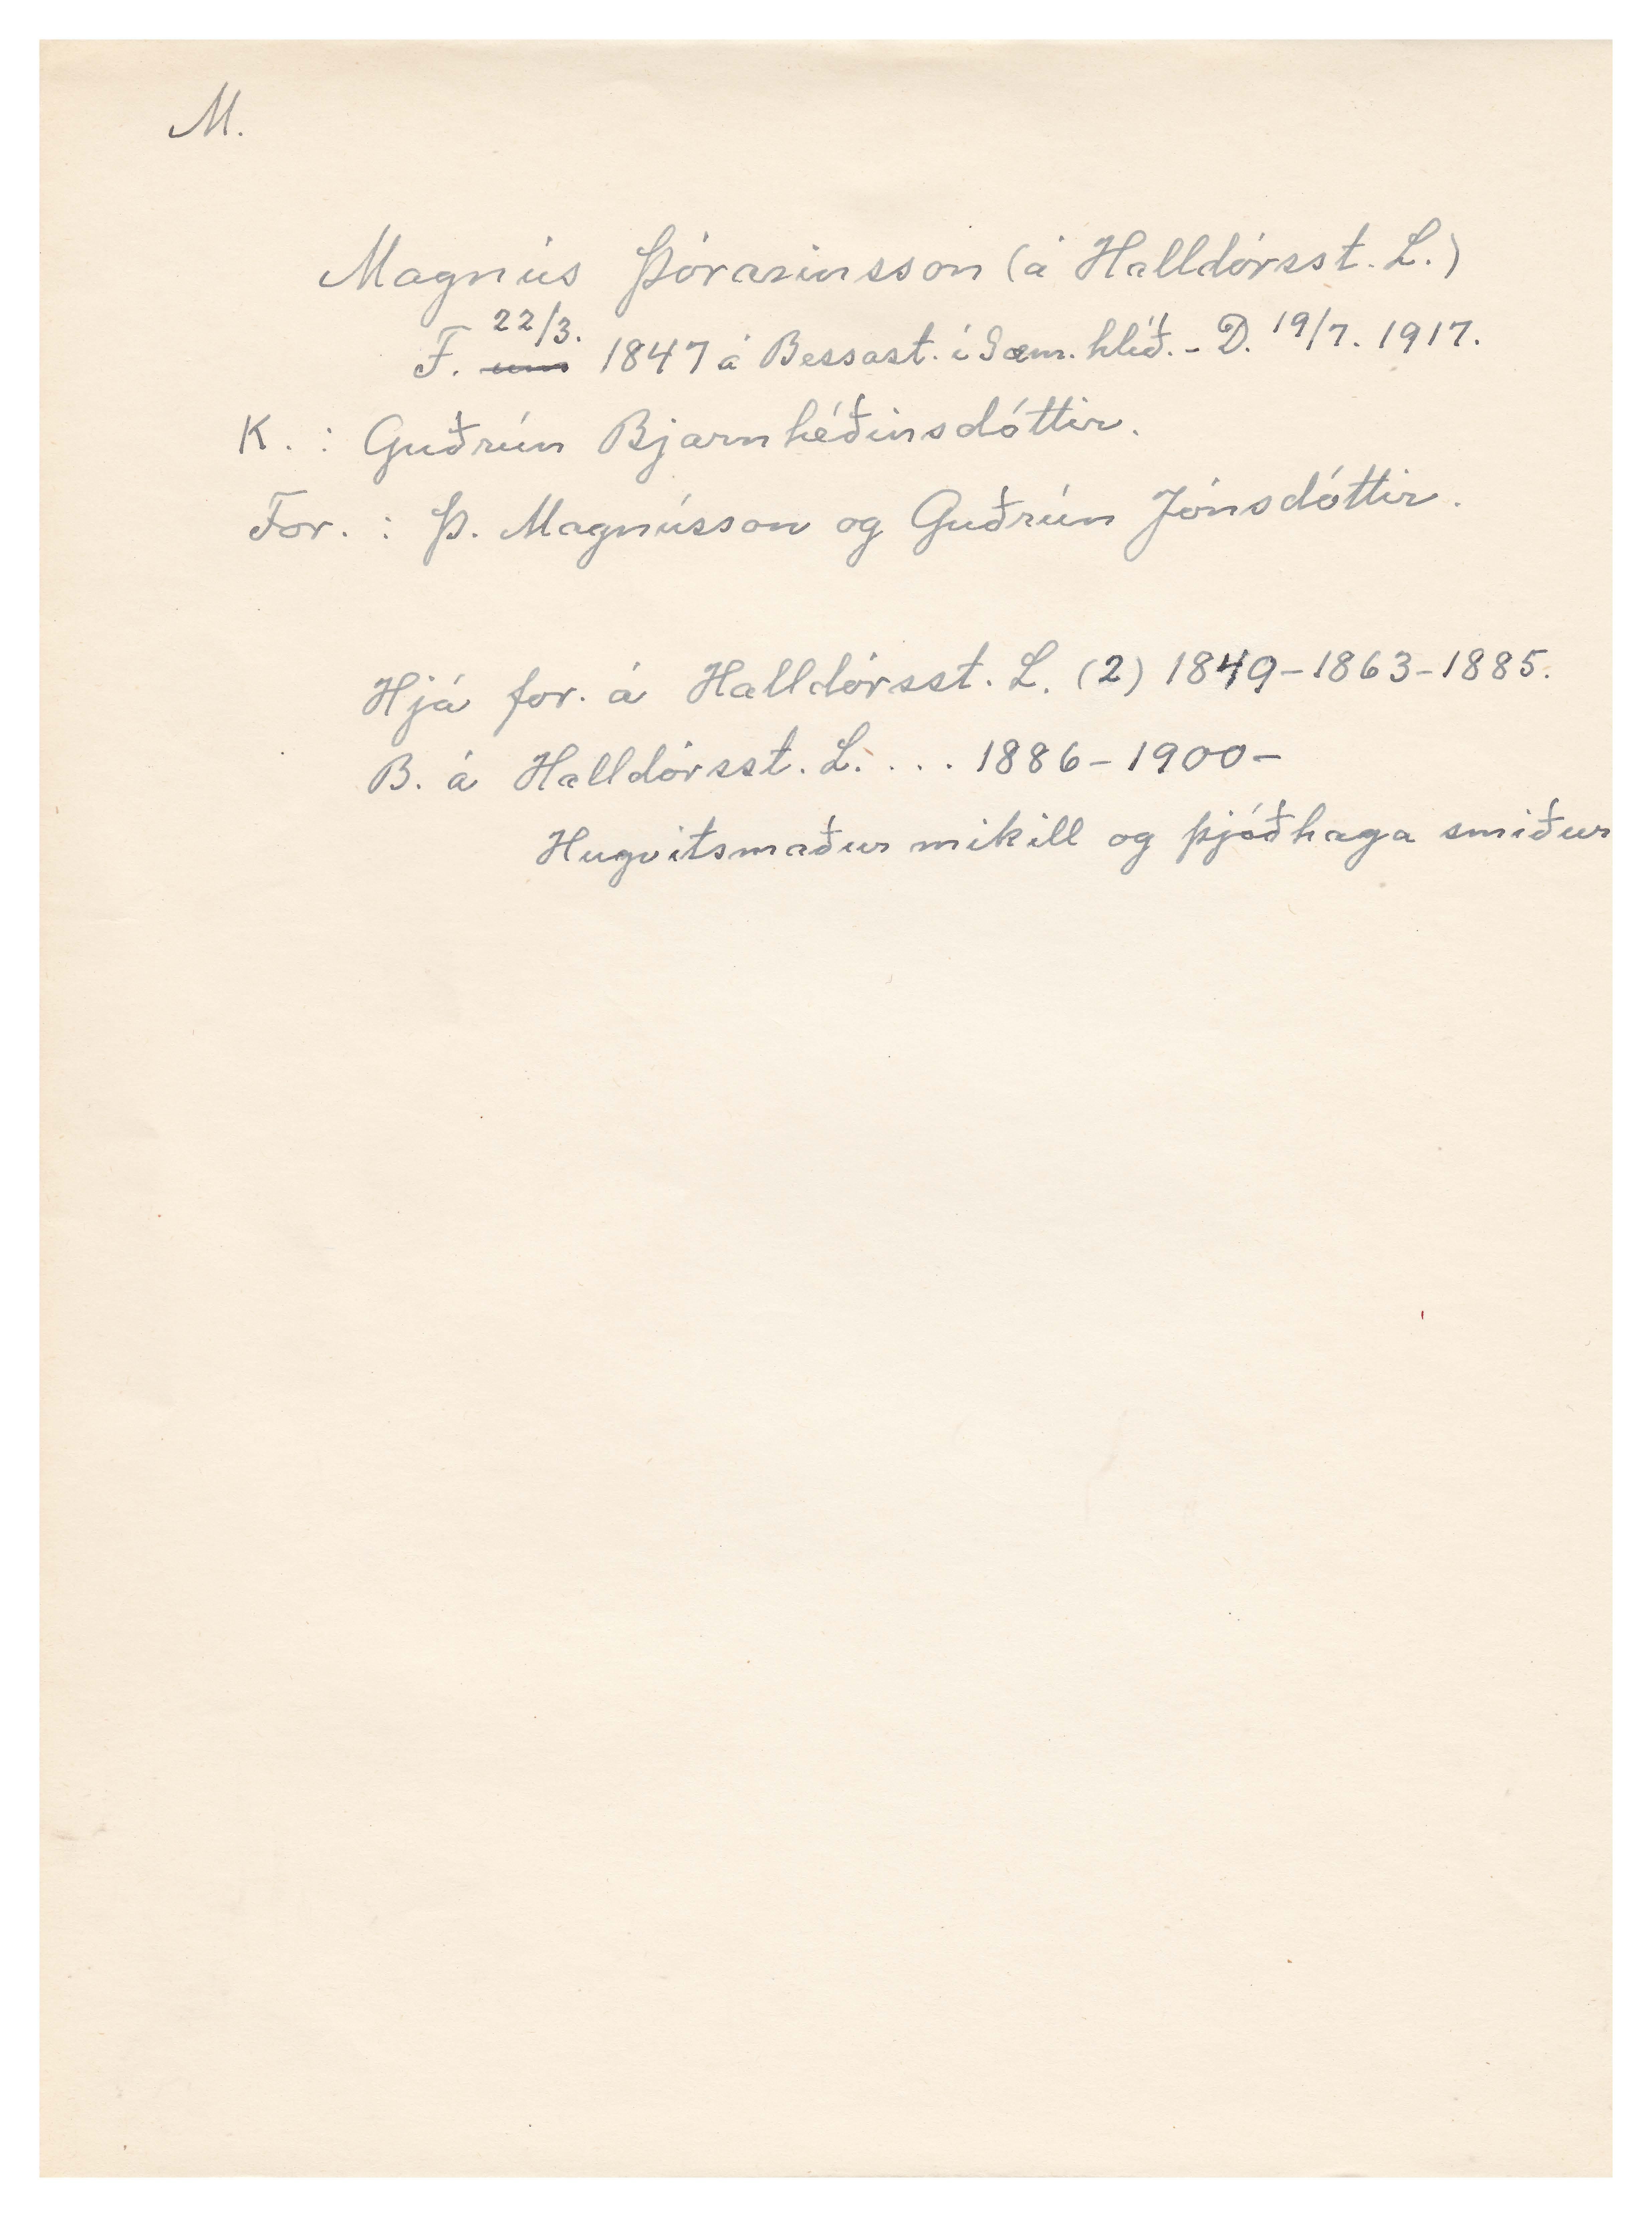 M.
Magnús Þórarinsson (á Halldórsst. L.)
22/3.
F. um 1847 á Bessast. í Sæm. hlíð. - D. 19/7. 1917.
K. : Guðrún Bjarnhéðinsdóttir.
For. : Þ. Magnússon og Guðrún Jónsdóttir.
Hjá for. á Halldórsst. L. (2) 1849-1863-1885.
B. á Halldórsst. L. . . . 1886-1900-
Hugvitsmaður mikill og þjóðhaga smiður